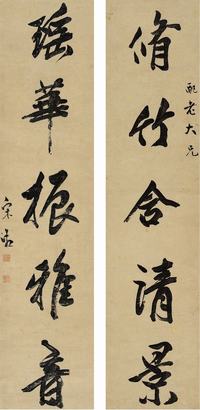 老大兄
脩竹含清景
瑤華振雅音
宋湘